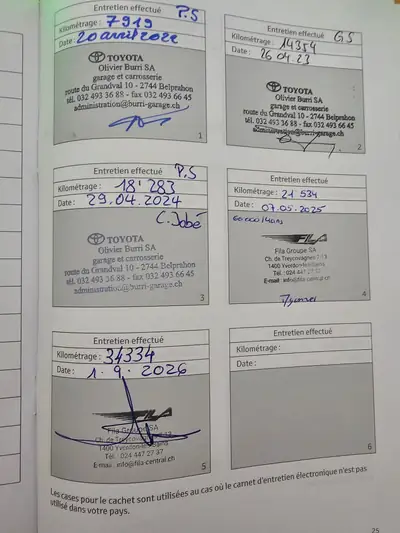 Entretien effectué P.S
Kilométrage : 7919
Date : 20 avril 2022
TOYOTA
Olivier Burri SA
garage et carrosserie
route du Grandval 10 - 2744 Belprahon
tél. 032 493 36 88 - fax 032 493 66 45
administration@burri-garage.ch
1
Entretien effectué GS
Kilométrage : 14354
Date : 26.04.23
TOYOTA
Olivier Burri SA
garage et carrosserie
route du Grandval 10 - 2744 Belprahon
tél. 032 493 36 88 - fax 032 493 66 45
administration@burri-garage.ch
2
Entretien effectué P.S
Kilométrage : 18'283
Date : 29.04.2024
TOYOTA
Olivier Burri SA
garage et carrosserie
route du Grandval 10 - 2744 Belprahon
tél. 032 493 36 88 - fax 032 493 66 45
administration@burri-garage.ch
3
Entretien effectué
Kilométrage : 21 534
Date : 07.05.2025
60000/4ans
FILA
Fila Groupe SA
Ch. de Treycovagnes
1400 Yverdon
Tél : 024 447 27 37
E-mail : info@fila-central.ch
4
Entretien effectué
Kilométrage : 34334
Date : 1.9.2026
FILA
Fila Groupe SA
Ch. de Treycovagnes
1400 Yverdon
Tél : 024 447 27 37
E-mail : info@fila-central.ch
5
Entretien effectué
Kilométrage :
Date :
6
Les cases pour le cachet sont utilisées au cas où le carnet d'entretien électronique n'est pas
utilisé dans votre pays.
25